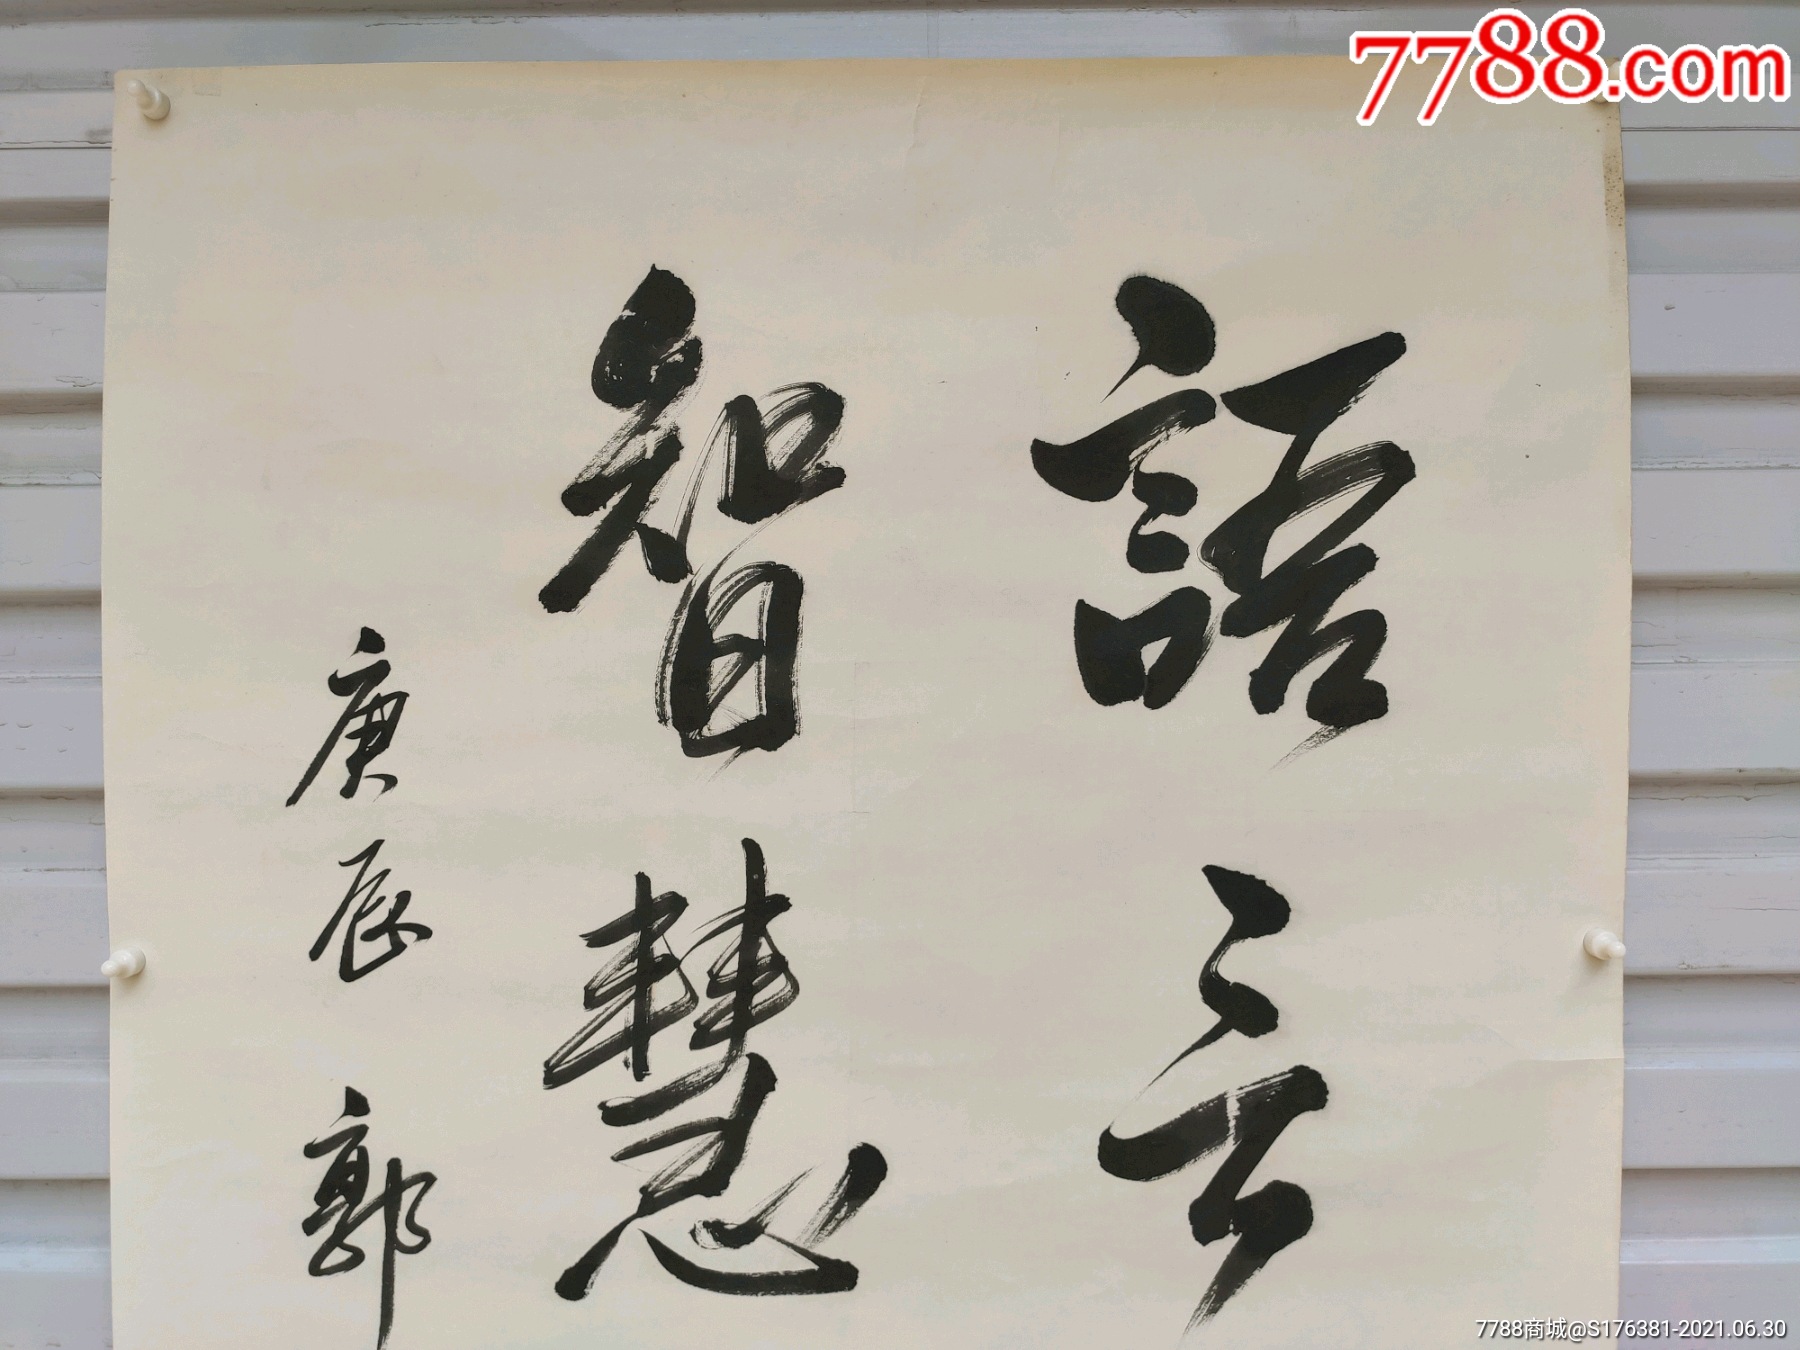 7788.com
語言
智慧
庚辰 郭
7788商城@S176381-2021.06.30